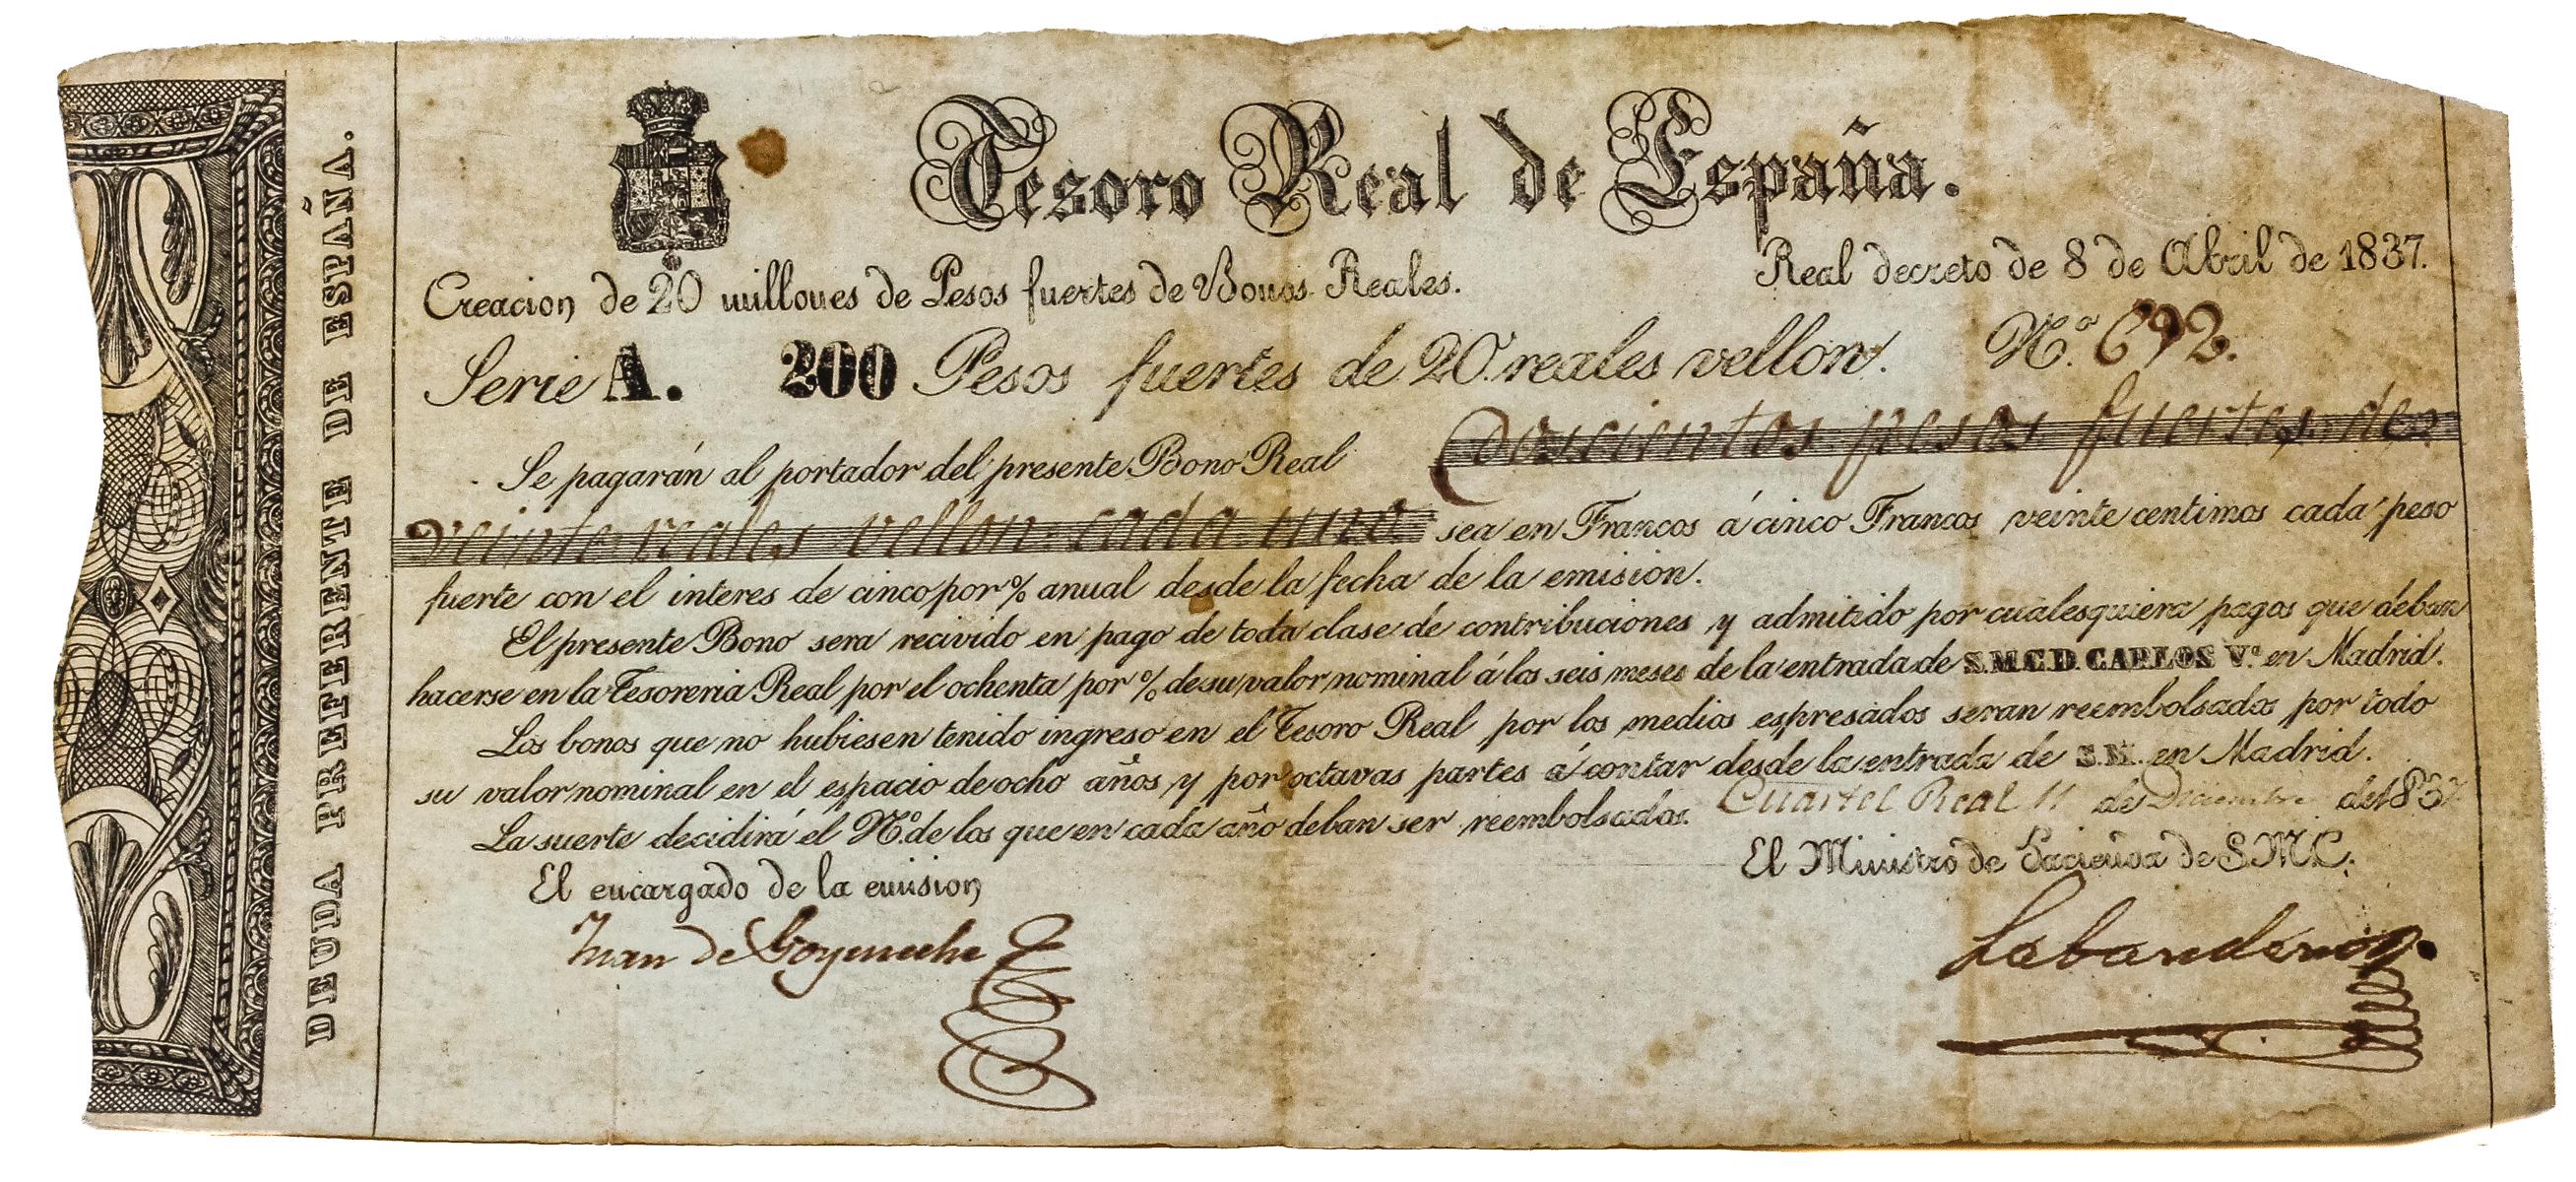 DEUDA PREFERENTE DE ESPAÑA.
Tesoro Real de España.
Creacion de 20 millones de Pesos fuertes de Bonos Reales.
Real decreto de 8 de Abril de 1837.
Serie A. 200 Pesos fuertes de 20 reales vellon. Nº. 692.
Se pagarán al portador del presente Bono Real Doscientos pesos fuertes de
veinte reales vellon cada uno sea en Francos á cinco Francos veinte centimos cada peso
fuerte con el interes de cinco por % anual desde la fecha de la emision.
El presente Bono sera recivido en pago de toda clase de contribuciones y admitido por cualesquiera pagos que deban
hacerse en la Tesoreria Real por el ochenta por % de su valor nominal á los seis meses de la entrada de S.M.C.D. CARLOS Vº. en Madrid.
Los bonos que no hubiesen tenido ingreso en el Tesoro Real por los medios espresados seran reembolsados por todo
su valor nominal en el espacio de ocho años y por octavas partes á contar desde la entrada de S.M. en Madrid.
La suerte decidirá el Nº. de los que en cada año deban ser reembolsados.
Cuartel Real 11 de Diciembre de 1837
El encargado de la emision
El Ministro de Hacienda de S.M.C.
Juan de Goyeneche
Labandero